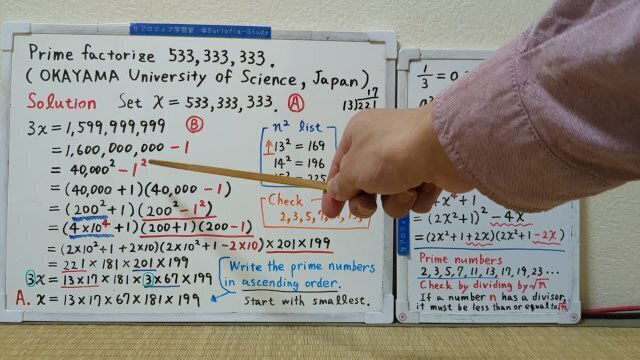 サアロフィア学習室 @Surlofia-Study
Prime factorize 533,333,333.
(OKAYAMA University of Science, Japan)
Solution Set x = 533,333,333. Ⓐ
17
13)221
3x = 1,599,999,999 Ⓑ
= 1,600,000,000 - 1
= 40,000² - 1²
= (40,000 + 1)(40,000 - 1)
= (200² + 1)(200² - 1²)
= (4×10⁴ + 1)(200+1)(200-1)
= (2×10² + 1 + 2×10)(2×10² + 1 - 2×10) × 201 × 199
= 221 × 181 × 201 × 199
3x = 13 × 17 × 181 × 3 × 67 × 199
A. x = 13 × 17 × 67 × 181 × 199
n² list
↑13² = 169
14² = 196
= 225
Check
2,3,5,7,
Write the prime numbers
in ascending order.
Start with smallest.
1/3 = 0.
+ 1
= (2x²+1)² - 4x
= (2x²+1+2x)(2x²+1-2x)
Prime numbers
2, 3, 5, 7, 11, 13, 17, 19, 23 ...
Check by dividing by √n
If a number n has a divisor,
it must be less than or equal to √n